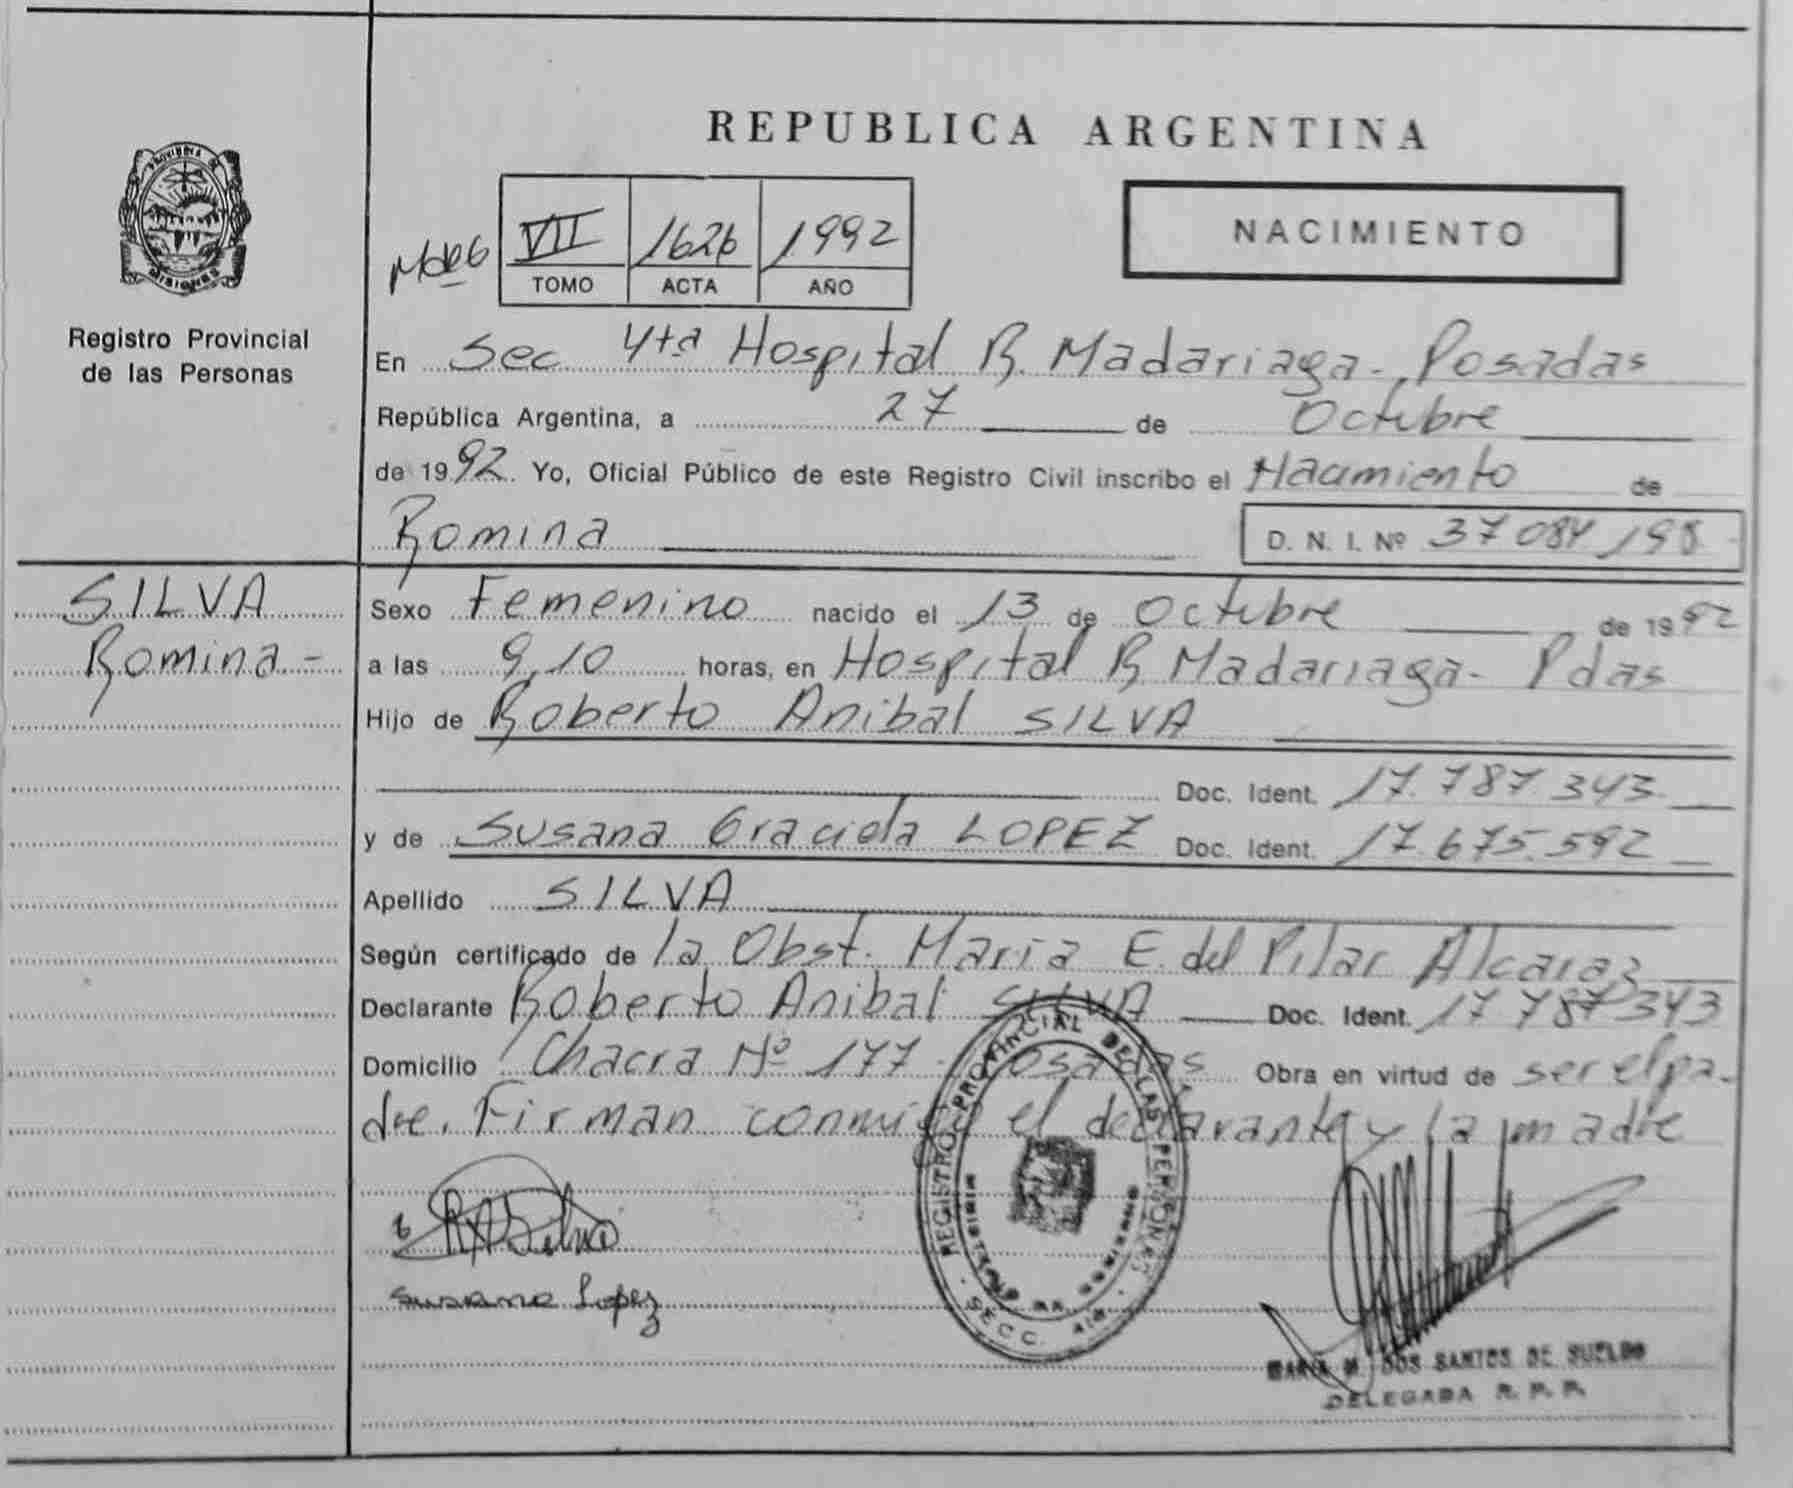 REPUBLICA ARGENTINA
PROVINCIA DE
MISIONES
Registro Provincial
de las Personas
VII 1626 1992
TOMO ACTA AÑO
NACIMIENTO
En Sec 4ta Hospital R. Madariaga - Posadas
República Argentina, a 27 de Octubre
de 1992. Yo, Oficial Público de este Registro Civil inscribo el Nacimiento de
Romina D. N. I. Nº 37 084 198
SILVA
Romina -
Sexo Femenino nacido el 13 de Octubre de 1992
a las 9,10 horas, en Hospital R Madariaga - Pdas
Hijo de Roberto Anibal SILVA
Doc. Ident. 17.787 343
y de Susana Graciela LOPEZ Doc. Ident. 17.675.592
Apellido SILVA
Según certificado de la Obst. Maria E. del Pilar Alcaraz
Declarante Roberto Anibal SILVA Doc. Ident. 17 787 343
Domicilio Chacra Nº 177 - Posadas Obra en virtud de ser el pa-
dre. Firman conmigo el declarante y la madre
REGISTRO PROVINCIAL DE LAS PERSONAS
SECC.
Susana Lopez
MARIA M. DOS SANTOS DE SUELDO
DELEGADA R. P. P.